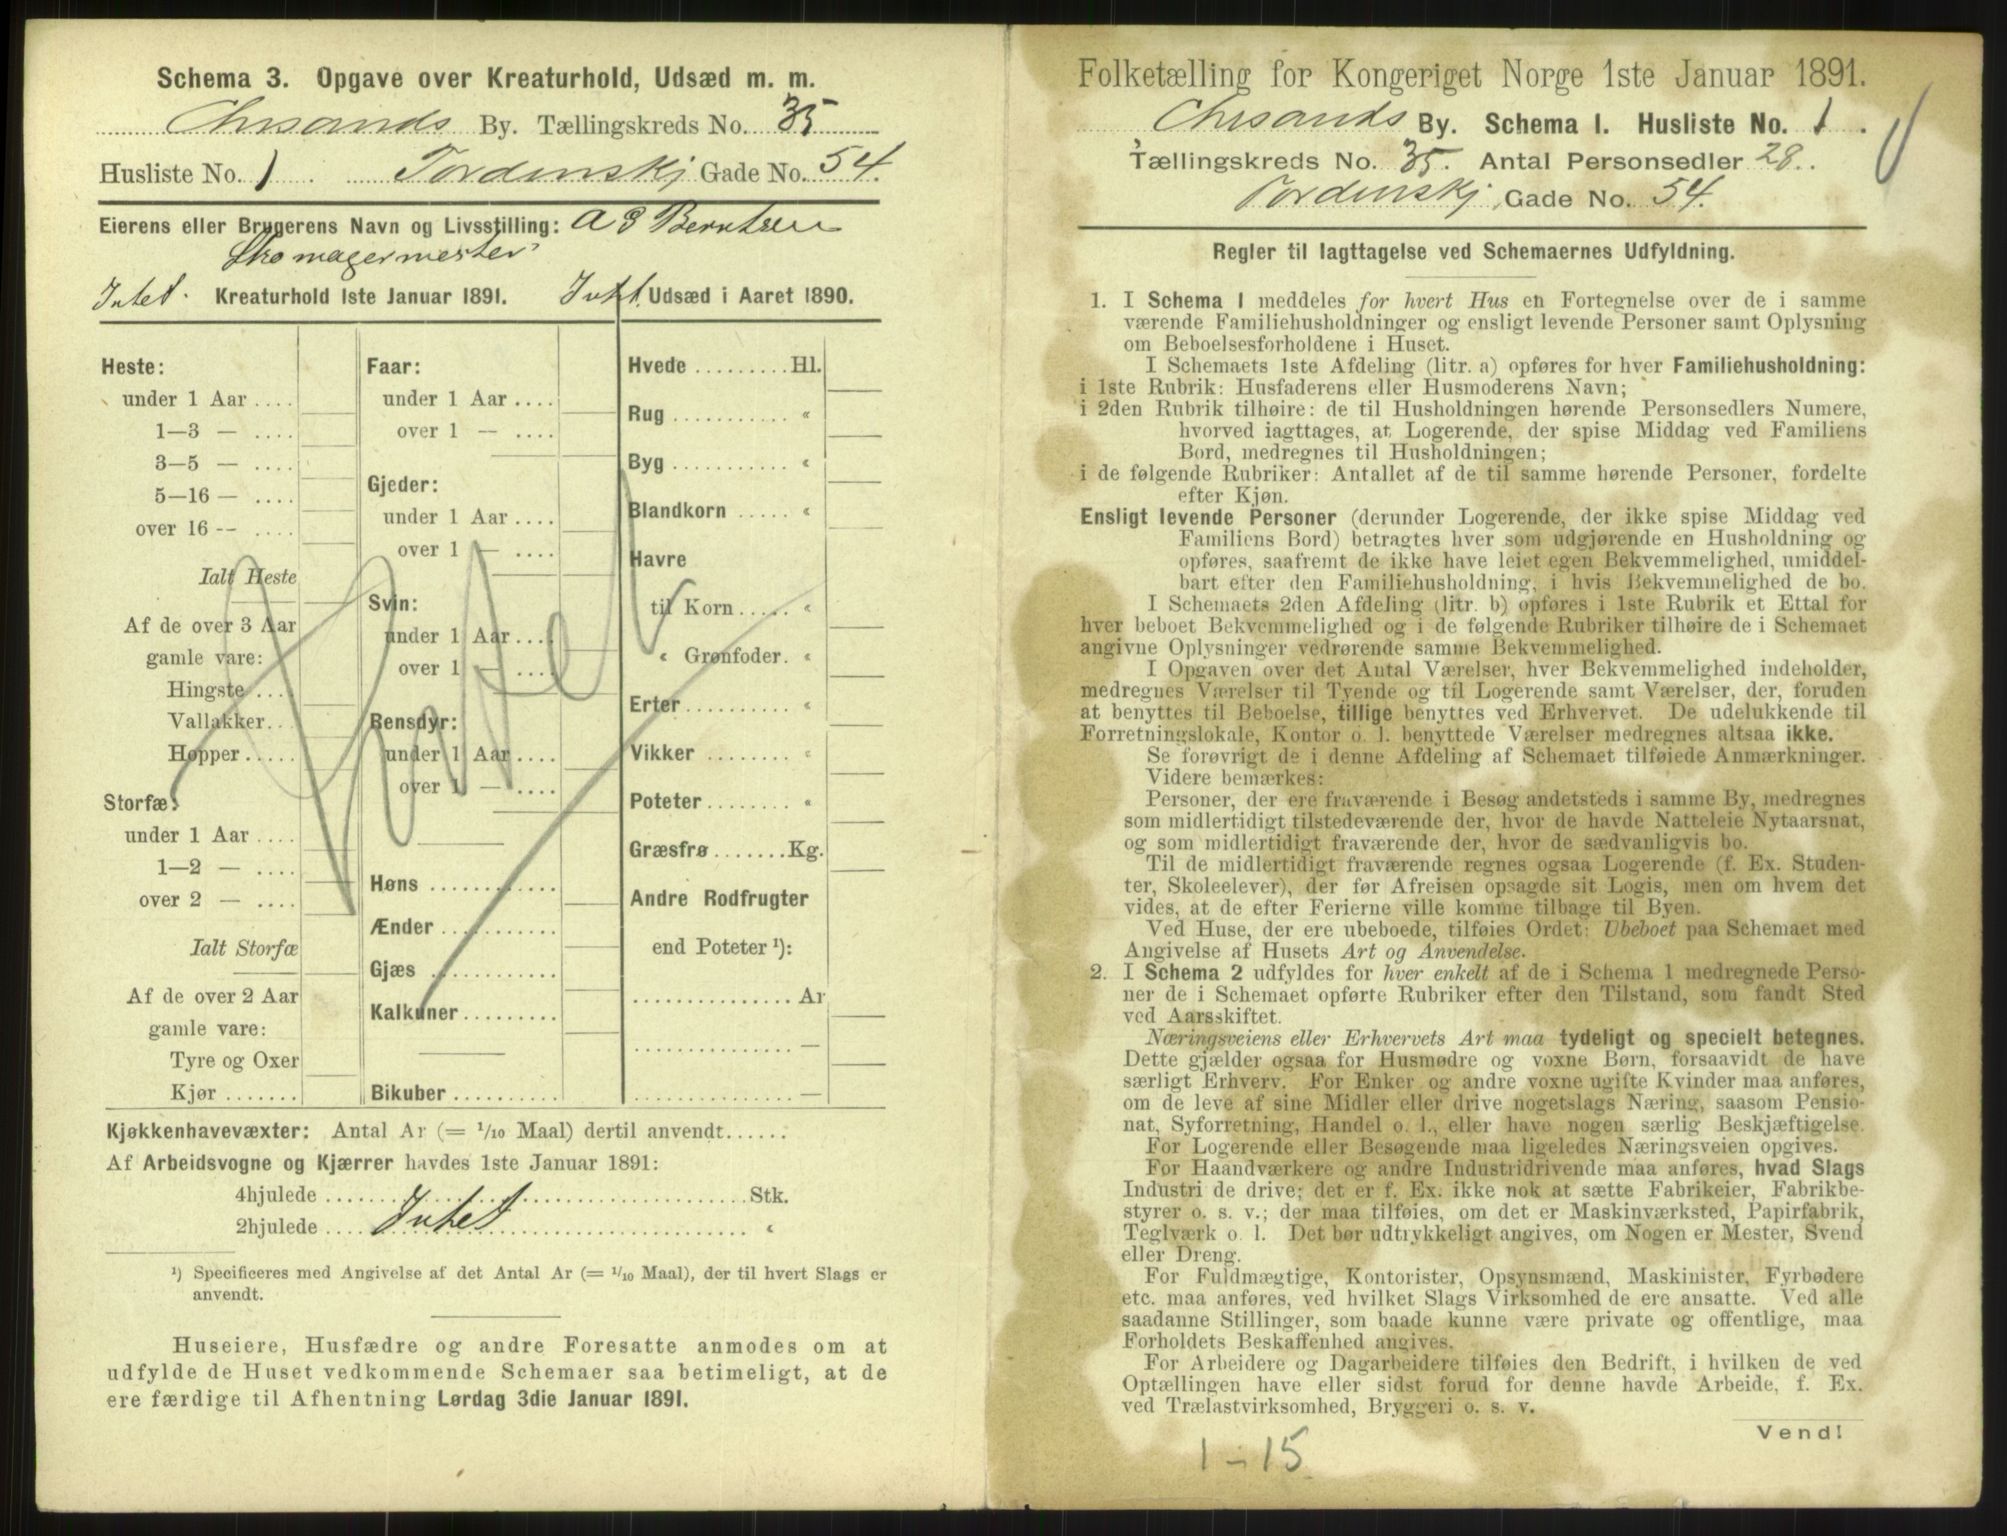 Schema 3. Opgave over Kreaturhold, Udsæd m. m.
Chrsands By. Tællingskreds No. 35
Husliste No. 1 Tordenskj Gade No. 54.
Eierens eller Brugerens Navn og Livsstilling: A G Berntsen
Skomagermester
Intet. Kreaturhold 1ste Januar 1891. Intet. Udsæd i Aaret 1890.
Heste:
under 1 Aar ....
1—3 — ....
3—5 — ....
5—16 — ....
over 16 -- ....
Ialt Heste
Af de over 3 Aar
gamle vare:
Hingste ....
Vallakker...
Hopper.....
Storfæ:
under 1 Aar ....
1—2 — ....
over 2 — ....
Ialt Storfæ
Af de over 2 Aar
gamle vare:
Tyre og Oxer
Kjør .......
Faar:
under 1 Aar ....
over 1 — ....
Gjeder:
under 1 Aar ....
over 1 — ....
Svin:
under 1 Aar ....
over 1 — ....
Rensdyr:
under 1 Aar ....
over 1 — ....
Høns ............
Ænder ...........
Gjæs ............
Kalkuner.........
Bikuber ..........
Hvede ......... Hl.
Rug ............ «
Byg ............ «
Blandkorn ..... «
Havre
til Korn ..... «
« Grønfoder. «
Erter........... «
Vikker ........ «
Poteter........ «
Græsfrø .......Kg.
Andre Rodfrugter
end Poteter ¹):
............... Ar
............... —
............... —
Kjøkkenhavevæxter: Antal Ar (= 1/10 Maal) dertil anvendt......
Af Arbeidsvogne og Kjærrer havdes 1ste Januar 1891:
4hjulede ........................................ Stk.
2hjulede .... Intet ........................ «
¹) Specificeres med Angivelse af det Antal Ar (= 1/10 Maal), der til hvert Slags er
anvendt.
Huseiere, Husfædre og andre Foresatte anmodes om at
udfylde de Huset vedkommende Schemaer saa betimeligt, at de
ere færdige til Afhentning Lørdag 3die Januar 1891.
Folketælling for Kongeriget Norge 1ste Januar 1891.
Chrsands By. Schema I. Husliste No. 1.
Tællingskreds No. 35. Antal Personsedler 28.
Tordenskj. Gade No. 54.
Regler til Iagttagelse ved Schemaernes Udfyldning.
1. I Schema 1 meddeles for hvert Hus en Fortegnelse over de i samme
værende Familiehusholdninger og ensligt levende Personer samt Oplysning
om Beboelsesforholdene i Huset.
I Schemaets 1ste Afdeling (litr. a) opføres for hver Familiehusholdning:
i 1ste Rubrik: Husfaderens eller Husmoderens Navn;
i 2den Rubrik tilhøire: de til Husholdningen hørende Personsedlers Numere,
hvorved iagttages, at Logerende, der spise Middag ved Familiens
Bord, medregnes til Husholdningen;
i de følgende Rubriker: Antallet af de til samme hørende Personer, fordelte
efter Kjøn.
Ensligt levende Personer (derunder Logerende, der ikke spise Middag ved
Familiens Bord) betragtes hver som udgjørende en Husholdning og
opføres, saafremt de ikke have leiet egen Bekvemmelighed, umiddel-
bart efter den Familiehusholdning, i hvis Bekvemmelighed de bo.
I Schemaets 2den Afdeling (litr. b) opføres i 1ste Rubrik et Ettal for
hver beboet Bekvemmelighed og i de følgende Rubriker tilhøire de i Schemaet
angivne Oplysninger vedrørende samme Bekvemmelighed.
I Opgaven over det Antal Værelser, hver Bekvemmelighed indeholder,
medregnes Værelser til Tyende og til Logerende samt Værelser, der, foruden
at benyttes til Beboelse, tillige benyttes ved Erhvervet. De udelukkende til
Forretningslokale, Kontor o. l. benyttede Værelser medregnes altsaa ikke.
Se forøvrigt de i denne Afdeling af Schemaet tilføiede Anmærkninger.
Videre bemærkes:
Personer, der ere fraværende i Besøg andetsteds i samme By, medregnes
som midlertidigt tilstedeværende der, hvor de havde Natteleie Nytaarsnat,
og som midlertidigt fraværende der, hvor de sædvanligvis bo.
Til de midlertidigt fraværende regnes ogsaa Logerende (f. Ex. Studen-
ter, Skoleelever), der før Afreisen opsagde sit Logis, men om hvem det
vides, at de efter Ferierne ville komme tilbage til Byen.
Ved Huse, der ere ubeboede, tilføies Ordet: Ubeboet paa Schemaet med
Angivelse af Husets Art og Anvendelse.
2. I Schema 2 udfyldes for hver enkelt af de i Schema 1 medregnede Perso-
ner de i Schemaet opførte Rubriker efter den Tilstand, som fandt Sted
ved Aarsskiftet.
Næringsveiens eller Erhvervets Art maa tydeligt og specielt betegnes.
Dette gjælder ogsaa for Husmødre og voxne Børn, forsaavidt de have
særligt Erhverv. For Enker og andre voxne ugifte Kvinder maa anføres,
om de leve af sine Midler eller drive nogetslags Næring, saasom Pensio-
nat, Syforretning, Handel o. l., eller have nogen særlig Beskjæftigelse.
For Logerende eller Besøgende maa ligeledes Næringsveien opgives.
For Haandværkere og andre Industridrivende maa anføres, hvad Slags
Industri de drive; det er f. Ex. ikke nok at sætte Fabrikeier, Fabrikbe-
styrer o. s. v.; der maa tilføies, om det er Maskinværksted, Papirfabrik,
Teglværk o. l. Det bør udtrykkeligt angives, om Nogen er Mester, Svend
eller Dreng.
For Fuldmægtige, Kontorister, Opsynsmænd, Maskinister, Fyrbødere
etc. maa anføres, ved hvilket Slags Virksomhed de ere ansatte. Ved alle
saadanne Stillinger, som baade kunne være private og offentlige, maa
Forholdets Beskaffenhed angives.
For Arbeidere og Dagarbeidere tilføies den Bedrift, i hvilken de ved
Optællingen have eller sidst forud for denne havde Arbeide, f. Ex.
ved Trælastvirksomhed, Bryggeri o. s. v.
Vend!
1 - 15